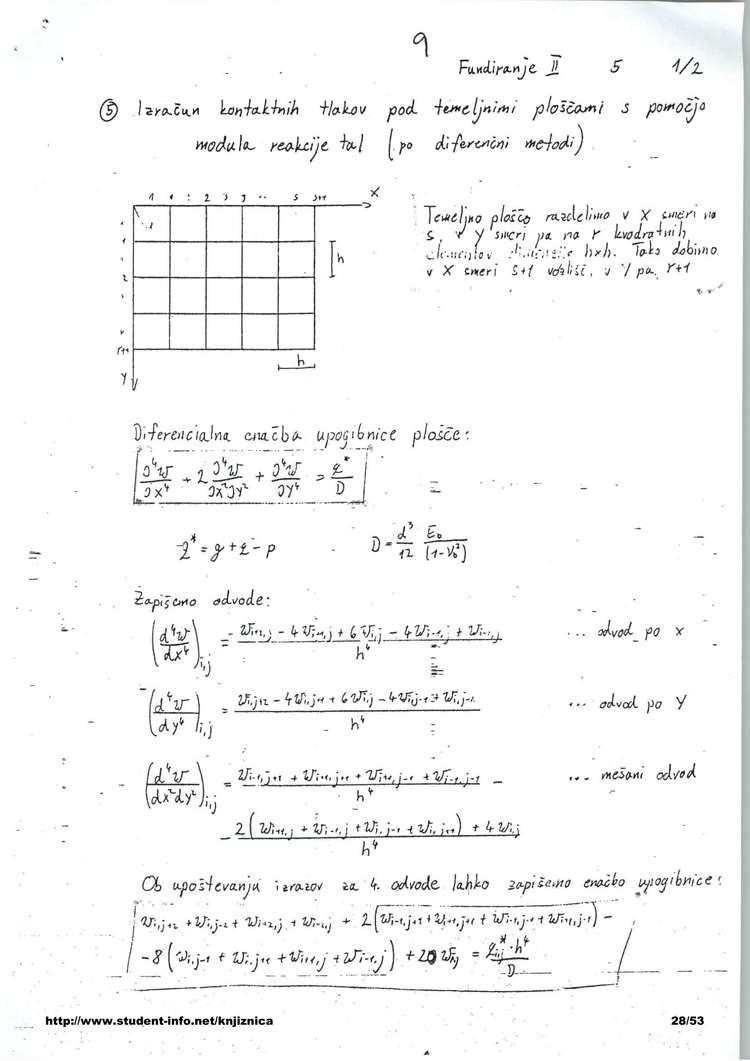 9
Fundiranje II 5 1/2
⑤ Izračun kontaktnih tlakov pod temeljnimi ploščami s pomočjo
modula reakcije tal (po diferenčni metodi)
1 2 3 s s+1 X
Temeljno ploščo razdelimo v X smeri na
s, v Y smeri pa na r kvadratnih
elementov dimenzije h×h. Tako dobimo
v X smeri s+1 vozlišč, v Y pa r+1
1
h
2
r+1
h
Y
Diferencialna enačba upogibnice plošče:
∂⁴w/∂x⁴ + 2 ∂⁴w/∂x²∂y² + ∂⁴w/∂y⁴ = q*/D
q* = g + q - p D = d³/12 E₀/(1-ν₀²)
Zapišemo odvode:
(d⁴w/dx⁴)i,j = (wi+2,j - 4wi+1,j + 6wi,j - 4wi-1,j + wi-2,j)/h⁴ ... odvod po x
(d⁴w/dy⁴)i,j = (wi,j+2 - 4wi,j+1 + 6wi,j - 4wi,j-1 + wi,j-2)/h⁴ ... odvod po Y
(d⁴w/dx²dy²)i,j = (wi-1,j+1 + wi+1,j+1 + wi+1,j-1 + wi-1,j-1)/h⁴ - ... mešani odvod
- (2(wi+1,j + wi-1,j + wi,j-1 + wi,j+1) + 4wi,j)/h⁴
Ob upoštevanju izrazov za 4. odvode lahko zapišemo enačbo upogibnice:
wi,j+2 + wi,j-2 + wi+2,j + wi-2,j + 2(wi-1,j+1 + wi+1,j+1 + wi-1,j-1 + wi+1,j-1) -
-8(wi,j-1 + wi,j+1 + wi+1,j + wi-1,j) + 20wi,j = q*i,j·h⁴/D
http://www.student-info.net/knjiznica 28/53